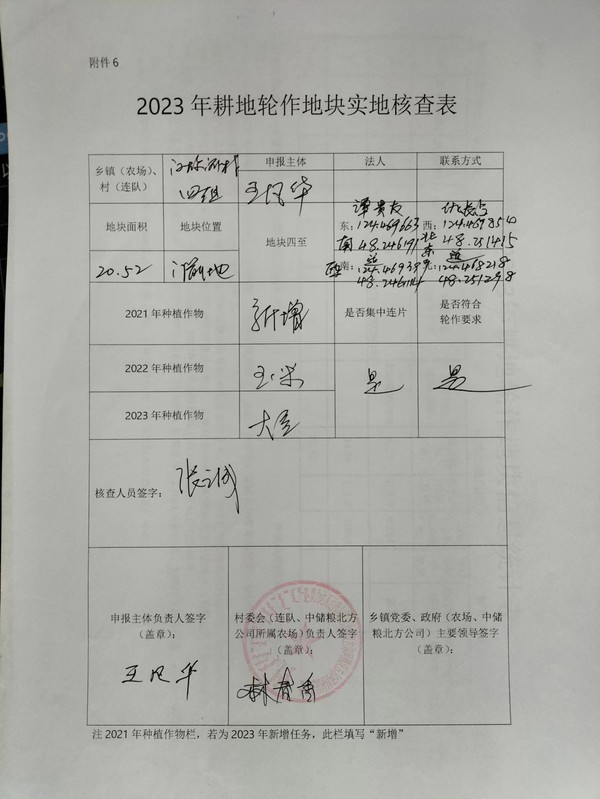 附件 6
2023 年耕地轮作地块实地核查表
乡镇（农场）、村（连队）
四组
申报主体
王凤华
法人
联系方式
地块面积
地块位置
地块四至
东：124.469663
48.246191
西：124.469854
48.251415
20.52
门前地
南：124.46938
48.246114
北：124.468218
48.251298
2021 年种植作物
新增
是否集中连片
是否符合
轮作要求
2022 年种植作物
玉米
是
是
2023 年种植作物
大豆
核查人员签字：
申报主体负责人签字
（盖章）：
王凤华
村委会（连队、中储粮北方
公司所属农场）负责人签字
（盖章）：
乡镇党委、政府（农场、中储
粮北方公司）主要领导签字
（盖章）：
注 2021 年种植作物栏，若为 2023 年新增任务，此栏填写“新增”